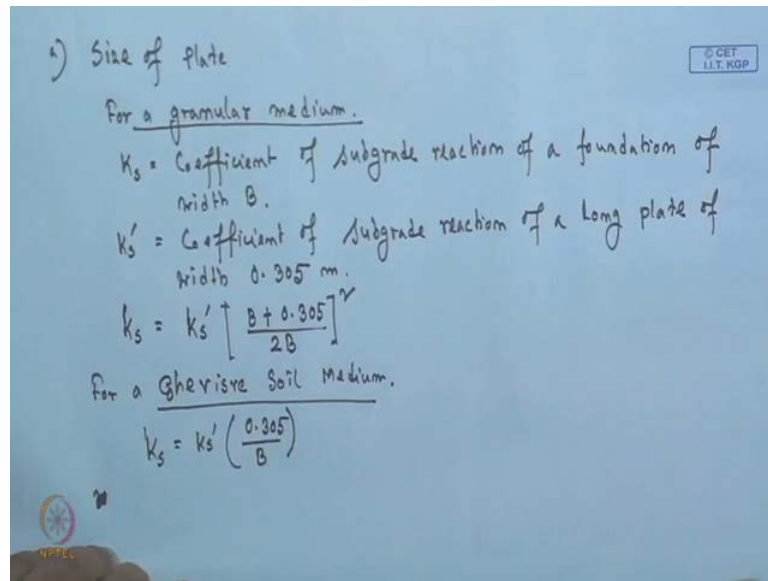 a) Size of Plate
© CET
I.I.T. KGP
For a granular medium.
Ks = Coefficient of subgrade reaction of a foundation of
width B.
Ks' = Coefficient of subgrade reaction of a Long plate of
width 0.305 m.
ks = ks' [ B + 0.305 / 2B ]²
For a Cohesive Soil Medium.
ks = ks' ( 0.305 / B )
NPTEL